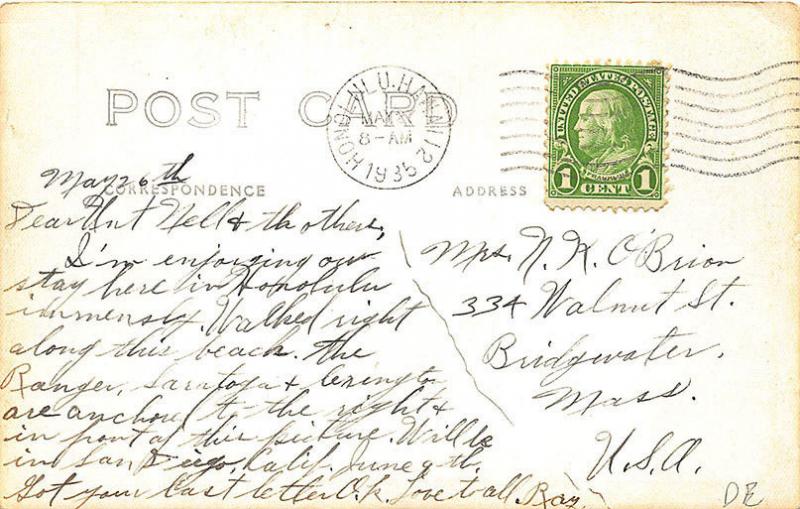 POST CARD
HONOLULU, HAWAII 2
MAY
8-AM
1935
UNITED STATES POSTAGE
FRANKLIN
1 CENT 1
CORRESPONDENCE
ADDRESS
May 26th
Dear Ant Nell & the others,
I'm enjoying our
stay here in Honolulu
immensly. Walked right
along this beach. The
Ranger, Saratoga & Lexington
are anchored to the right &
in front of this picture. Will be
in San Diego, Calif. June 9th.
Got your last letter O.K. Love to all. Ray.
Mrs. N. K. O'Brion
334 Walnut St.
Bridgwater,
Mass.
U.S.A.
DE